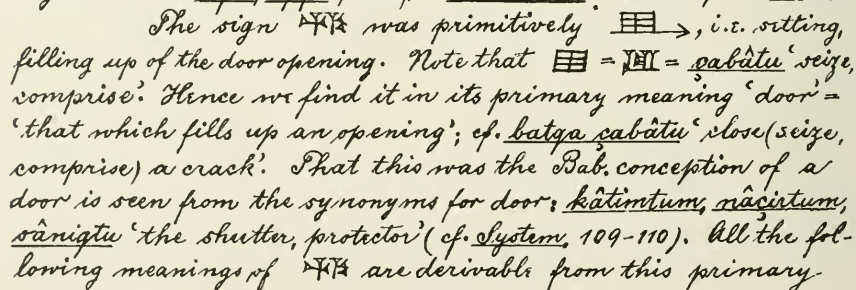 The sign was primitively , i.e. setting,
filling up of the door opening. Note that = = çabâtu 'seize,
comprise'. Hence we find it in its primary meaning 'door' =
'that which fills up an opening'; cf. batqa çabâtu 'close (seize,
comprise) a crack'. That this was the Bab. conception of a
door is seen from the synonyms for door: kâtimtum, nâçirtum,
sâniqtu 'the shutter, protector' (cf. System, 109-110). All the fol-
lowing meanings of are derivable from this primary